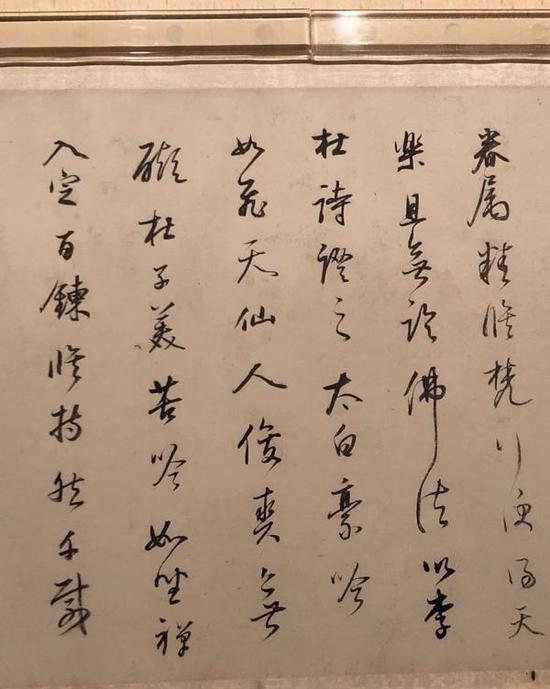 眷属精脩梵行便得天
樂且無論佛法以李
杜詩證之太白豪吟
如飛天仙人俊爽無
礙杜子美苦吟如坐禪
入定百鍊脩持然千載